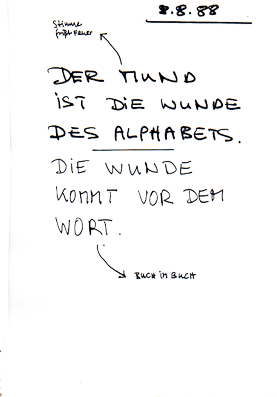 8.8.88
Stimme
frißt Feuer
DER MUND
IST DIE WUNDE
DES ALPHABETS.
DIE WUNDE
KOMMT VOR DEM
WORT.
BUCH IM BUCH